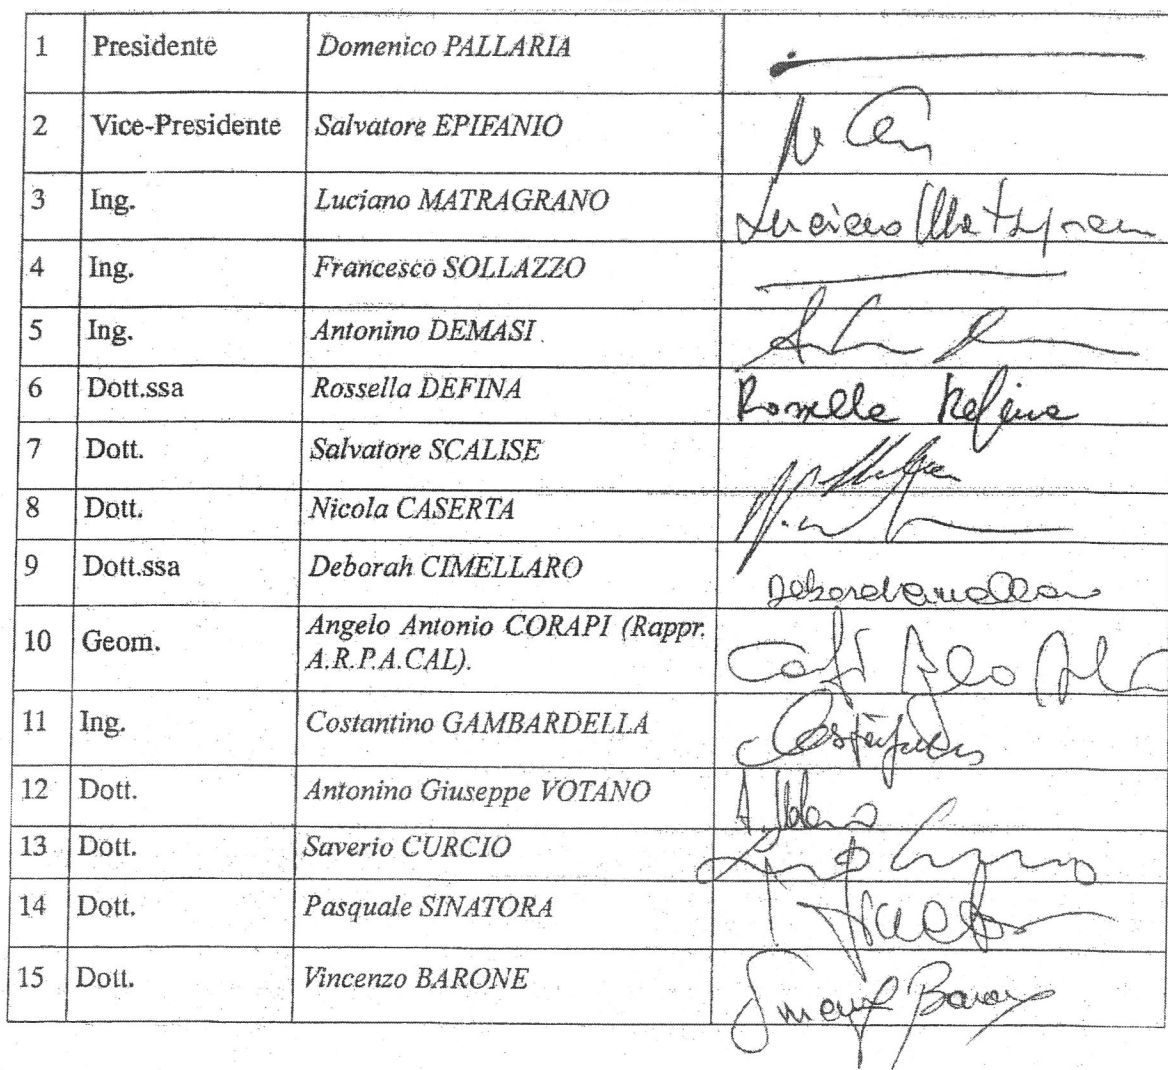 1 Presidente Domenico PALLARIA
2 Vice-Presidente Salvatore EPIFANIO
3 Ing. Luciano MATRAGRANO Luciano
4 Ing. Francesco SOLLAZZO
5 Ing. Antonino DEMASI
6 Dott.ssa Rossella DEFINA Rossella Defina
7 Dott. Salvatore SCALISE
8 Dott. Nicola CASERTA
9 Dott.ssa Deborah CIMELLARO
10 Geom. Angelo Antonio CORAPI (Rappr.
A.R.P.A.CAL).
11 Ing. Costantino GAMBARDELLA
12 Dott. Antonino Giuseppe VOTANO
13 Dott. Saverio CURCIO
14 Dott. Pasquale SINATORA
15 Dott. Vincenzo BARONE